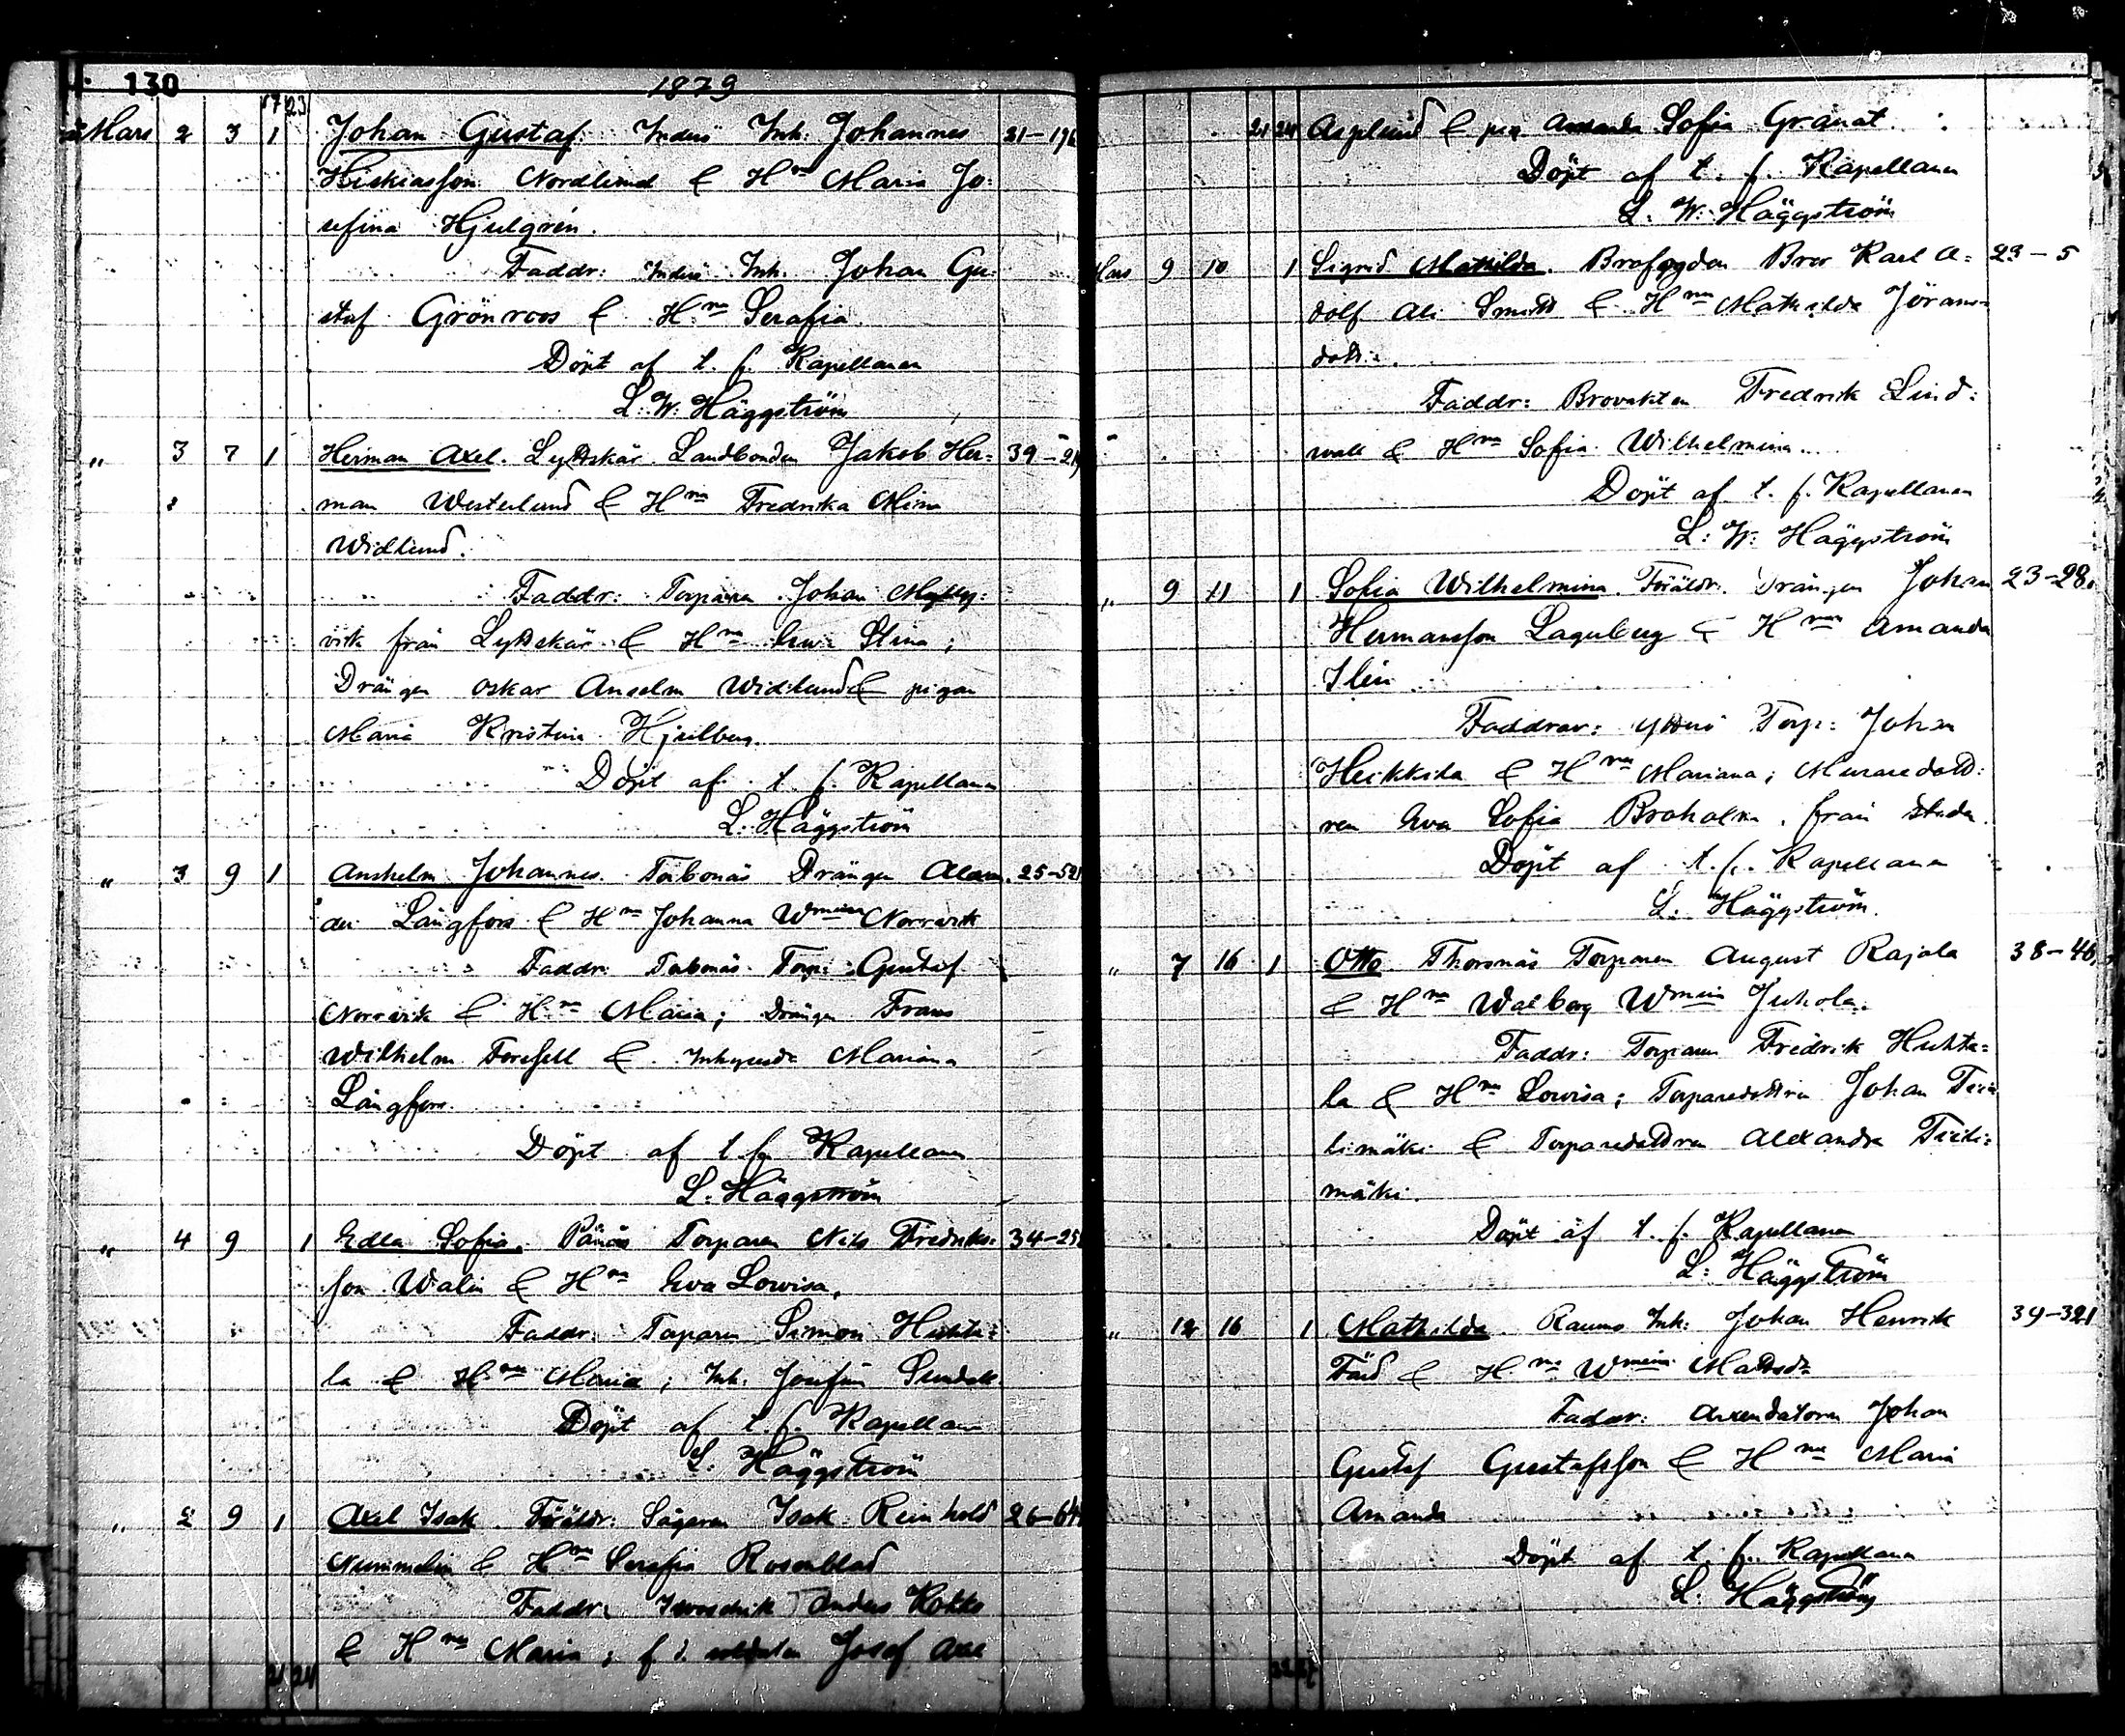 130
1879
17 23
Mars 2 3 1 Johan Gustaf. Inderö Inh. Johannes 31-196
Hiskiasson Nordlund & Hn Maria Jo-
sefina Hjulgrén.
Faddr: Inderö Inh. Johan Gu-
staf Grönroos & Hru Serafia
Döpt af t. f. Kapellanen
L. W. Häggström
" 3 7 1 Herman Axel. Lyttskär. Landbonden Jakob Her= 39-
man Westerlund & Hru Fredrika Mina
Widlund.
Faddr: Torparen Johan
vik från Lyttskär & Hru Eva Stina;
Drängen Oskar Anselm Widlund & pigan
Maria Kristina Hjulberg.
Döpt af t. f. Kapellanen
L. Häggström
" 3 9 1 Anshelm Johannes. Torbonäs Drängen 25-521
der Långfors & Hru Johanna Wmina Norrvik
Faddr: Torbonäs Torp: Gustaf
Norrvik & Hru Maria; Drängen Frans
Wilhelm Forsell & Inhysesda Mariana
Långfors.
Döpt af t. f. Kapellanen
L. Häggström
" 4 9 1 Edla Sofia. Pänäs Torparen Nils Fredriks- 34-25
son Walin & Hru Eva Lovisa.
Faddr: Torparen Simon Huhta=
la & Hru Maria; Inh. Josefin
Döpt af t. f. Kapellanen
L. Häggström
" 2 9 1 Axel Isak. Föräldr: Sågaren Isak Reinhold 26-64
Nummelin & Hru Serafia Rosenblad
Faddr: Anders Kokko
& Hru Maria; f. d. soldaten Josef Axel
21 24
21 24 Asplund & pig. Amanda Sofia Granat.
Döpt af t. f. Kapellanen
L. W. Häggström
Mars 9 10 1 Sigrid Mathilda. Brofogden Bror Karl A= 23-5
dolf Ali Smitt & Hru Mathilda Jörans=
dott:.
Faddr: Brovakten Fredrik Lind=
wall & Hru Sofia Wilhelmina.
Döpt af t. f. Kapellanen
L. W. Häggström
" 9 11 1 Sofia Wilhelmina. Föräldr. Drängen Johan 23-28.
Hermansson Lagerberg & Hru Amanda
Ilén
Faddrar: Ytterö Torp: Johan
Heikkila & Hru Mariana; Muraredott=
ren Eva Sofia Broholm, från staden.
Döpt af t. f. Kapellanen
L. Häggström.
" 7 16 1 Otto. Thorsnäs Torparen August Rajala 38-46.
& Hru Walborg Wmina Juhola.
Faddr: Torparen Fredrik Huhta=
la & Hru Lovisa; Johan
limäki & Torparedottren Alexandra
mäki.
Döpt af t. f. Kapellanen
L. Häggström
" 12 16 1 Mathilda. Raumo Inh: Johan Henrik 39-321
Färd & Hru Wmina Mattsdr
Faddr: Arrendatorn Johan
Gustaf Gustafsson & Hru Maria
Amanda
Döpt af t. f. Kapellanen
L. Häggström